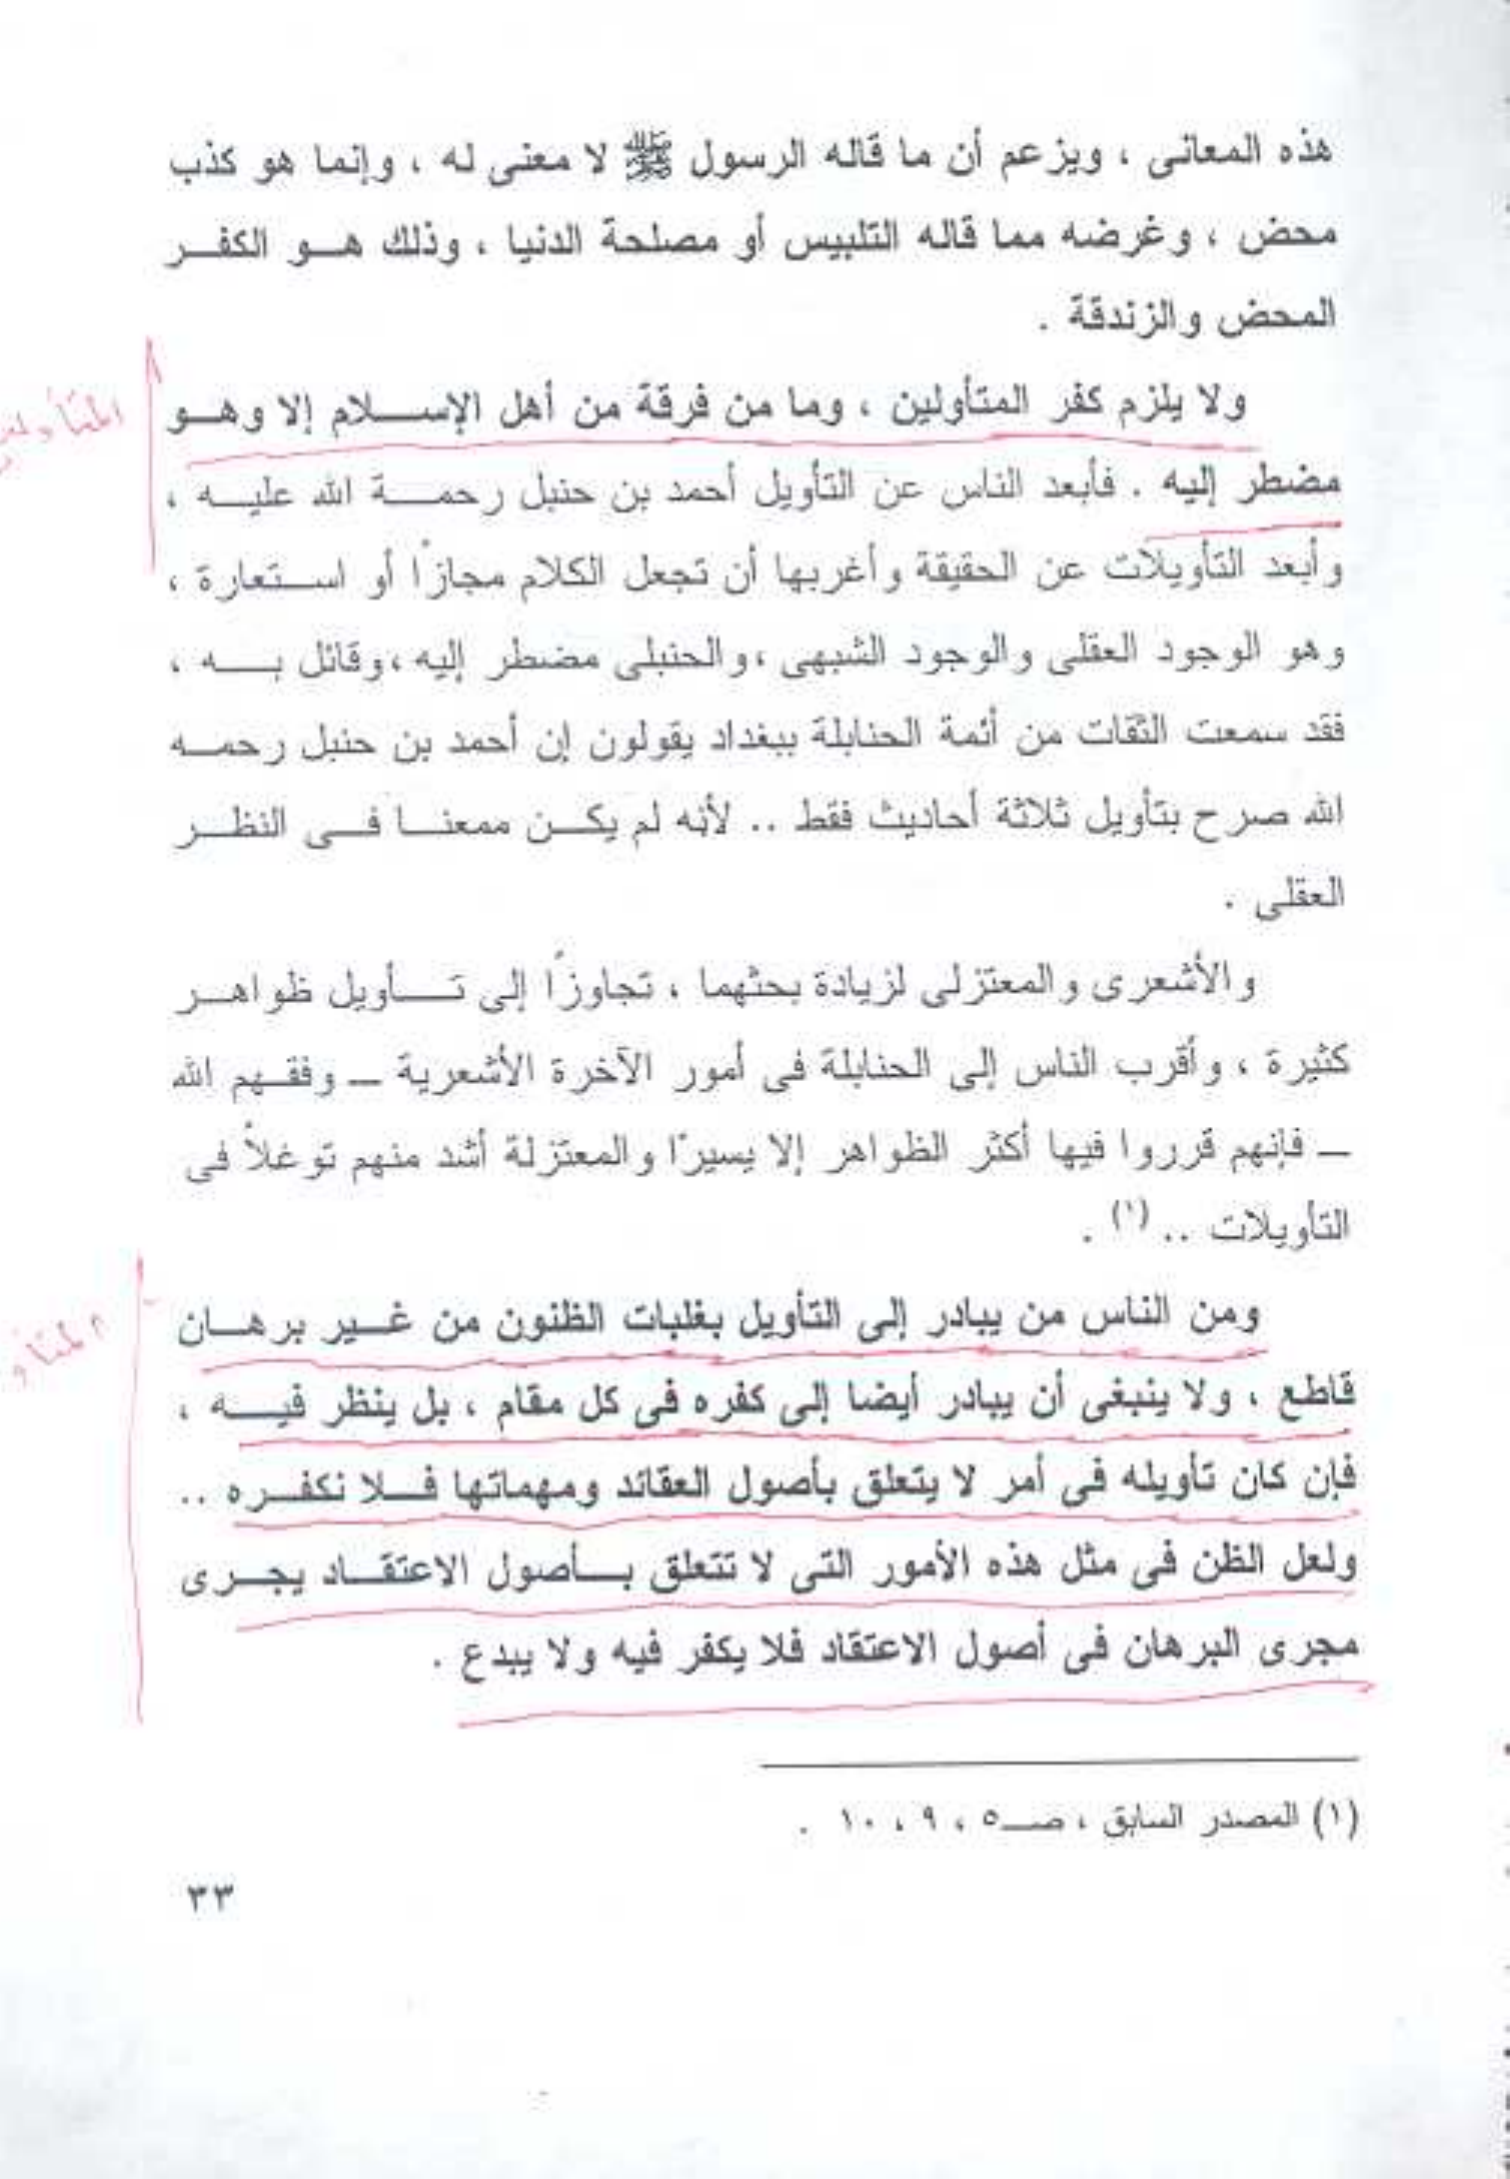 هذه المعانى ، ويزعم أن ما قاله الرسول ﷺ لا معنى له ، وإنما هو كذب
محض ، وغرضه مما قاله التلبيس أو مصلحة الدنيا ، وذلك هو الكفر
المحض والزندقة .
ولا يلزم كفر المتأولين ، وما من فرقة من أهل الإسلام إلا وهو
مضطر إليه . فأبعد الناس عن التأويل أحمد بن حنبل رحمة الله عليه ،
وأبعد التأويلات عن الحقيقة وأغربها أن تجعل الكلام مجازًا أو استعارة ،
وهو الوجود العقلى والوجود الشبهى ، والحنبلى مضطر إليه ، وقائل به ،
فقد سمعت الثقات من أئمة الحنابلة ببغداد يقولون إن أحمد بن حنبل رحمه
الله صرح بتأويل ثلاثة أحاديث فقط .. لأنه لم يكن ممعنا فى النظر
العقلى .
والأشعرى والمعتزلى لزيادة بحثهما ، تجاوزًا إلى تأويل ظواهر
كثيرة ، وأقرب الناس إلى الحنابلة فى أمور الآخرة الأشعرية ــ وفقهم الله
ــ فإنهم قرروا فيها أكثر الظواهر إلا يسيرًا والمعتزلة أشد منهم توغلاً فى
التأويلات .. (١) .
ومن الناس من يبادر إلى التأويل بغلبات الظنون من غير برهان
قاطع ، ولا ينبغى أن يبادر أيضا إلى كفره فى كل مقام ، بل ينظر فيه ،
فإن كان تأويله فى أمر لا يتعلق بأصول العقائد ومهماتها فلا نكفره ..
ولعل الظن فى مثل هذه الأمور التى لا تتعلق بأصول الاعتقاد يجرى
مجرى البرهان فى أصول الاعتقاد فلا يكفر فيه ولا يبدع .
(١) المصدر السابق ، صــ٥ ، ٩ ، ١٠ .
٣٣